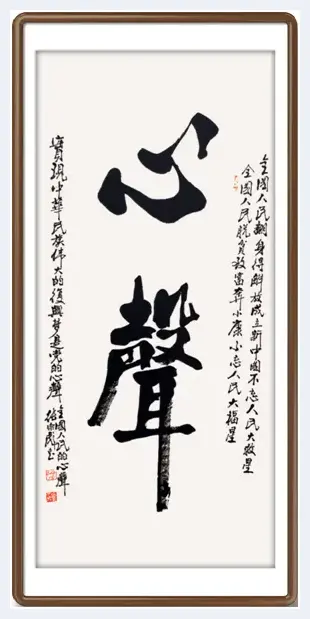 全國人民翻身得解放成立新中國不忘人民大救星
全國人民脫貧致富奔小康不忘人民大福星
心聲
實現中華民族偉大的復興夢是党的心聲
全國人民的心聲